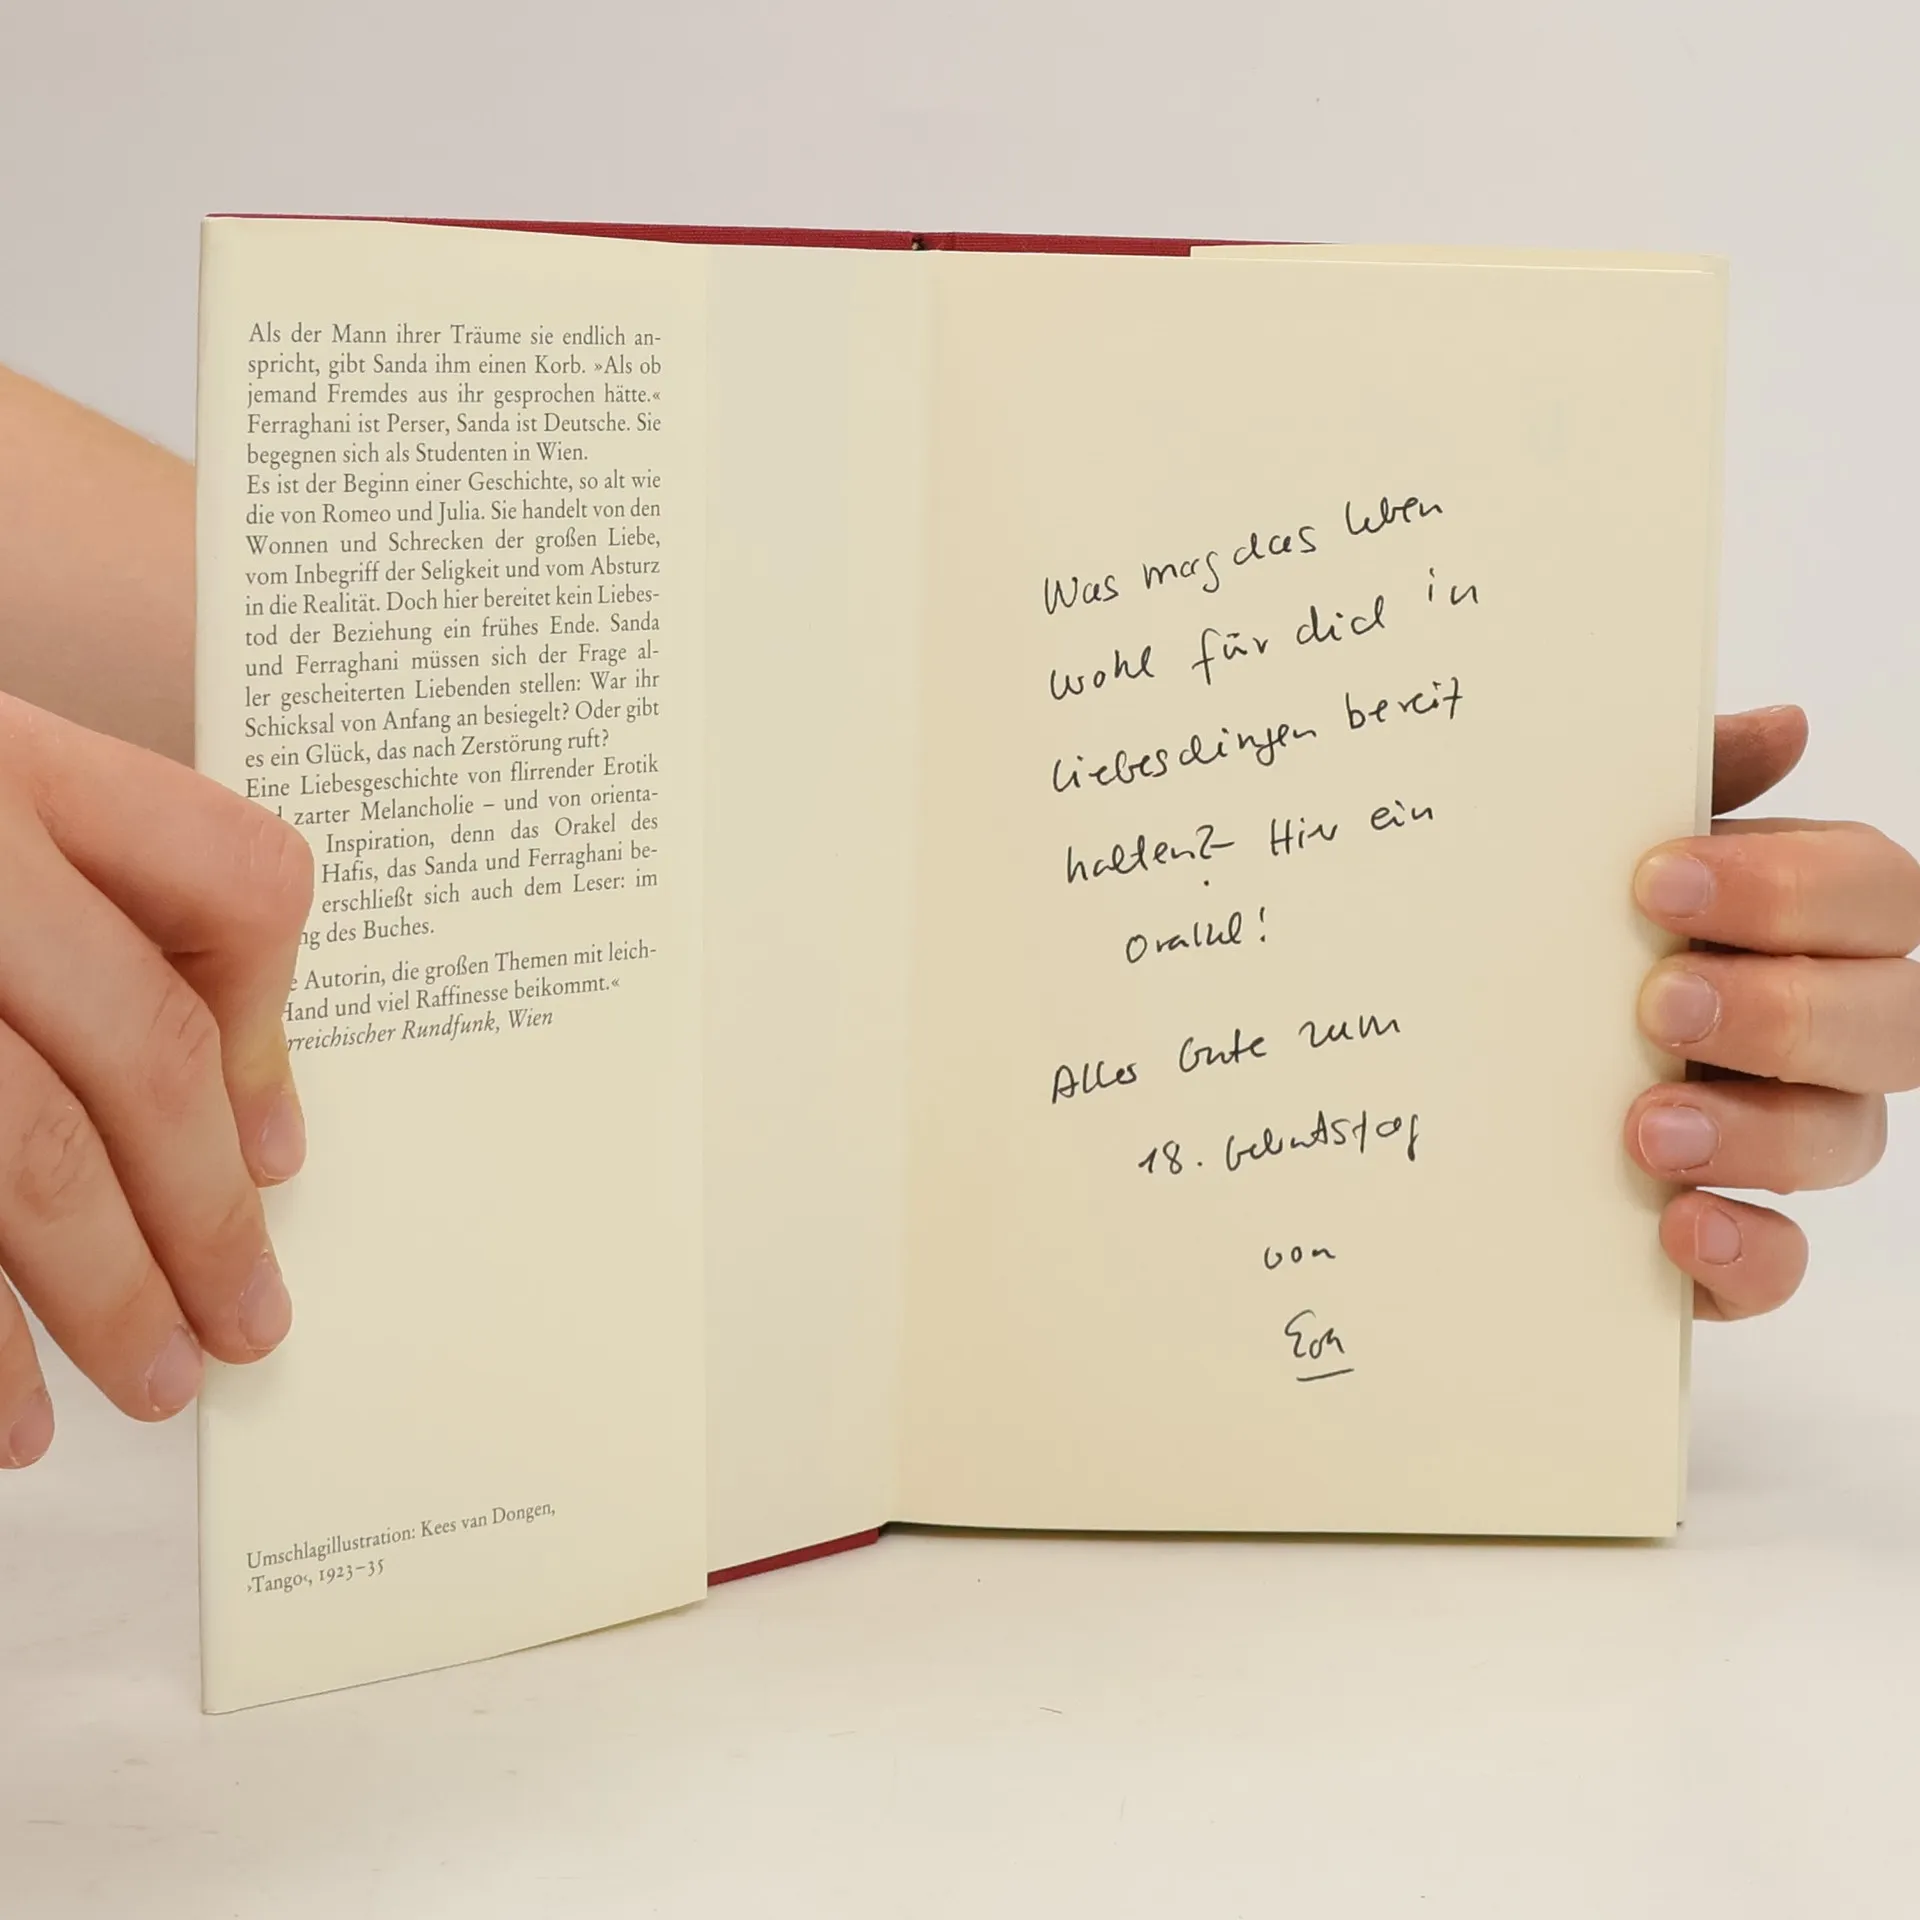 Als der Mann ihrer Träume sie endlich an-
spricht, gibt Sanda ihm einen Korb. »Als ob
jemand Fremdes aus ihr gesprochen hätte.«
Ferraghani ist Perser, Sanda ist Deutsche. Sie
begegnen sich als Studenten in Wien.
Es ist der Beginn einer Geschichte, so alt wie
die von Romeo und Julia. Sie handelt von den
Wonnen und Schrecken der großen Liebe,
vom Inbegriff der Seligkeit und vom Absturz
in die Realität. Doch hier bereitet kein Liebes-
tod der Beziehung ein frühes Ende. Sanda
und Ferraghani müssen sich der Frage al-
ler gescheiterten Liebenden stellen: War ihr
Schicksal von Anfang an besiegelt? Oder gibt
es ein Glück, das nach Zerstörung ruft?
Eine Liebesgeschichte von flirrender Erotik
zarter Melancholie – und von orienta-
Inspiration, denn das Orakel des
Hafis, das Sanda und Ferraghani be-
erschließt sich auch dem Leser: im
ng des Buches.
Autorin, die großen Themen mit leich-
Hand und viel Raffinesse beikommt.«
rreichischer Rundfunk, Wien
Umschlagillustration: Kees van Dongen,
›Tango‹, 1923–35
Was mag das Leben
wohl für dich in
Liebesdingen bereit
halten? Hier ein
Orakel!
Alles Gute zum
18. Geburtstag
von